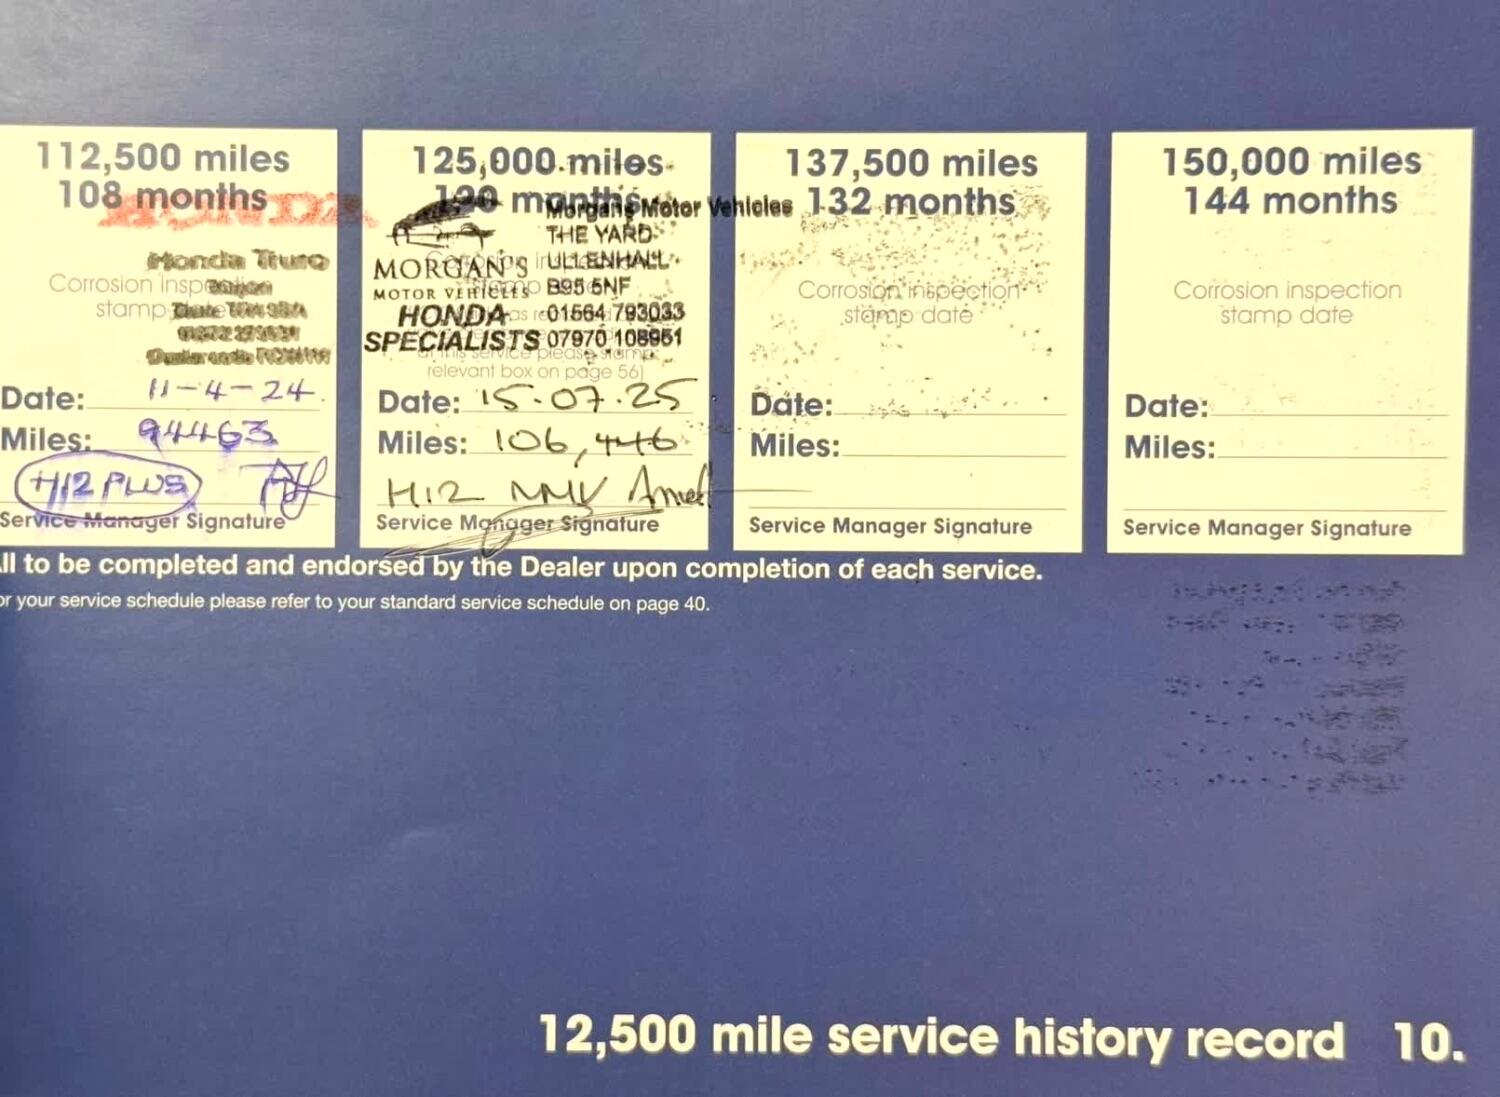 112,500 miles
108 months
HONDA
Honda Truro
Corrosion inspection
stamp date
Date: 11-4-24.
Miles: 94463
H12 PLUS
Service Manager Signature
125,000 miles
120 months
Morgans Motor Vehicles
THE YARD
ULLENHALL
B95 5NF
01564 793033
07970 108951
MORGAN'S
MOTOR VEHICLES
HONDA
SPECIALISTS
at this service please stamp
relevant box on page 56)
Date: 15.07.25
Miles: 106,446
H12
Service Manager Signature
137,500 miles
132 months
Corrosion inspection
stamp date
Date:
Miles:
Service Manager Signature
150,000 miles
144 months
Corrosion inspection
stamp date
Date:
Miles:
Service Manager Signature
ll to be completed and endorsed by the Dealer upon completion of each service.
or your service schedule please refer to your standard service schedule on page 40.
12,500 mile service history record 10.